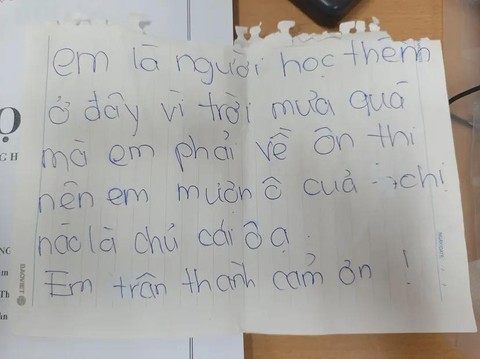 em là người học thêm
ở đây vì trời mưa quá
mà em phải về ôn thi
nên em mượn ô cuả chị
nào là chủ cái ô ạ.
Em trân thành cảm ơn !